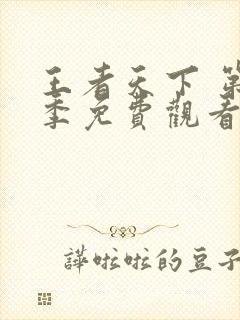 王者天下 第
季免費觀看
譁啦啦的豆子